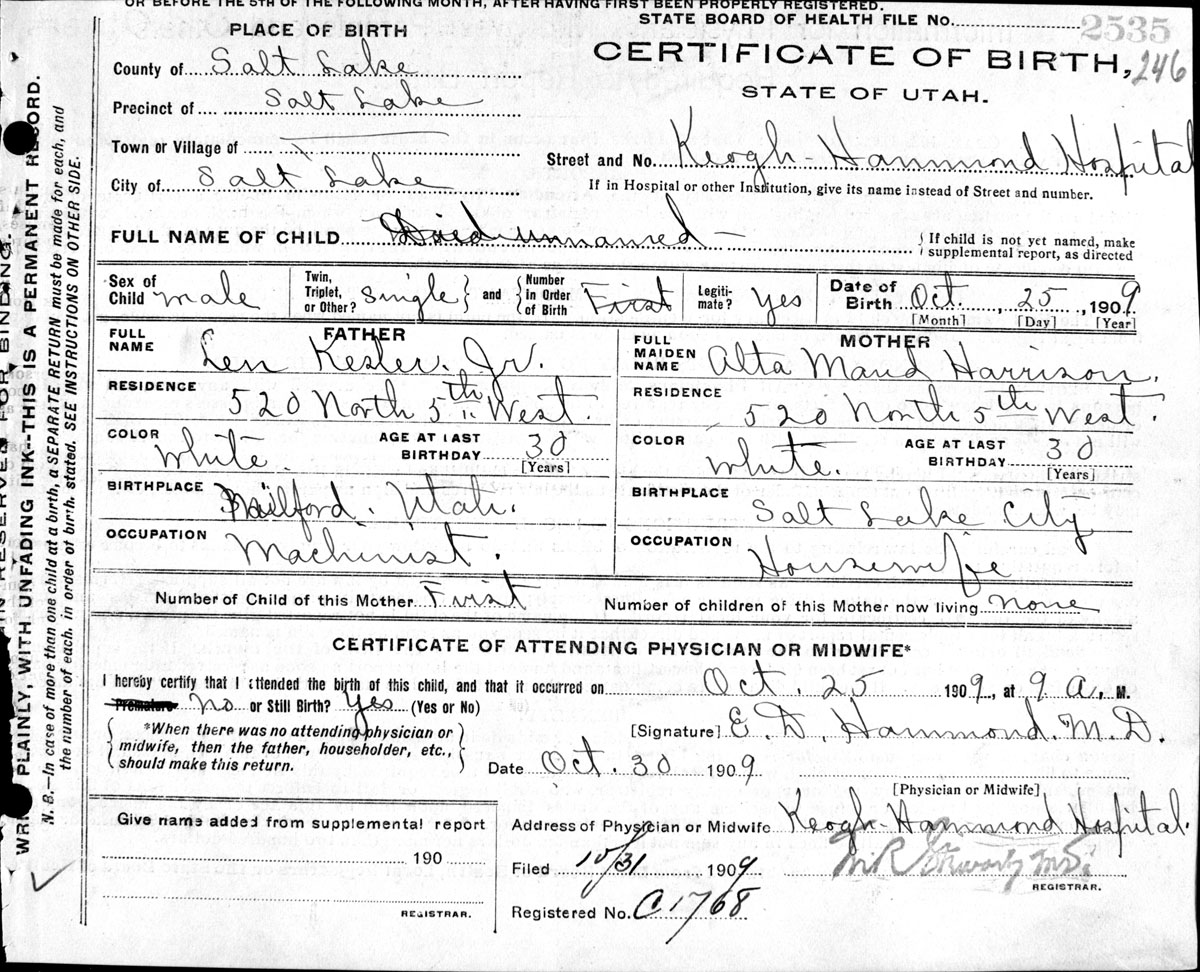 OR BEFORE THE 5TH OF THE FOLLOWING MONTH, AFTER HAVING FIRST BEEN PROPERLY REGISTERED.
STATE BOARD OF HEALTH FILE NO. 2535
PLACE OF BIRTH
CERTIFICATE OF BIRTH, 246
STATE OF UTAH.
County of Salt Lake
Precinct of Salt Lake
Town or Village of
Street and No. Keogh-Hammond Hospital
City of Salt Lake
If in Hospital or other Institution, give its name instead of Street and number.
FULL NAME OF CHILD unnamed
If child is not yet named, make supplemental report, as directed
Sex of Child male
Twin, Triplet, or Other? Single and Number in Order of Birth First
Legitimate? Yes
Date of Birth Oct. 25, 1909
[Month] [Day] [Year]
FATHER
FULL NAME Len Kesler. Jr.
RESIDENCE 520 North 5th West.
COLOR White. AGE AT LAST BIRTHDAY 30 [Years]
BIRTHPLACE Milford. Utah.
OCCUPATION Machinist.
MOTHER
FULL MAIDEN NAME Alta Maud Harrison.
RESIDENCE 520 North 5th West.
COLOR White. AGE AT LAST BIRTHDAY 30 [Years]
BIRTHPLACE Salt Lake City
OCCUPATION Housewife
Number of Child of this Mother First
Number of children of this Mother now living none
CERTIFICATE OF ATTENDING PHYSICIAN OR MIDWIFE*
I hereby certify that I attended the birth of this child, and that it occurred on Oct. 25 1909, at 9 a. M.
Premature No or Still Birth? Yes (Yes or No)
*When there was no attending physician or midwife, then the father, householder, etc., should make this return.
[Signature] E. D. Hammond. M.D.
Date Oct. 30 1909
[Physician or Midwife]
Give name added from supplemental report
190
REGISTRAR.
Address of Physician or Midwife Keogh-Hammond Hospital.
Filed 10/31 1909
REGISTRAR.
Registered No. C1768
IN RESERVED FOR BINDING.
WRITE PLAINLY, WITH UNFADING INK-THIS IS A PERMANENT RECORD.
N. B.—In case of more than one child at a birth, a SEPARATE RETURN must be made for each, and
the number of each, in order of birth, stated. SEE INSTRUCTIONS ON OTHER SIDE.